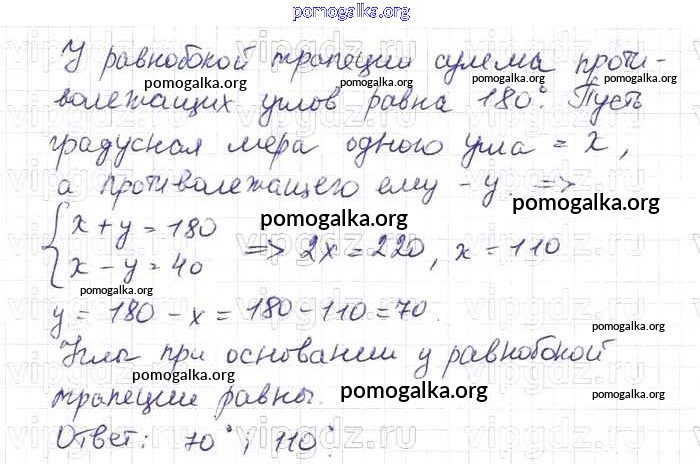 pomogalka.org
У равнобокой трапеции сумма проти-
pomogalka.org pomogalka.org pomogalka.org
волежащих углов равна 180°. Пусть
pomogalka.org pomogalka.org pomogalka.org
градусная мера одного угла = x,
а противолежащего ему - y. =>
pomogalka.org pomogalka.org
{ x + y = 180
x - y = 40
=> 2x = 220, x = 110
y = 180 - x = 180 - 110 = 70.
pomogalka.org
Углы при основании у равнобокой
pomogalka.org
трапеции равны.
pomogalka.org pomogalka.org
Ответ: 70°; 110°.
vipgdz.ru